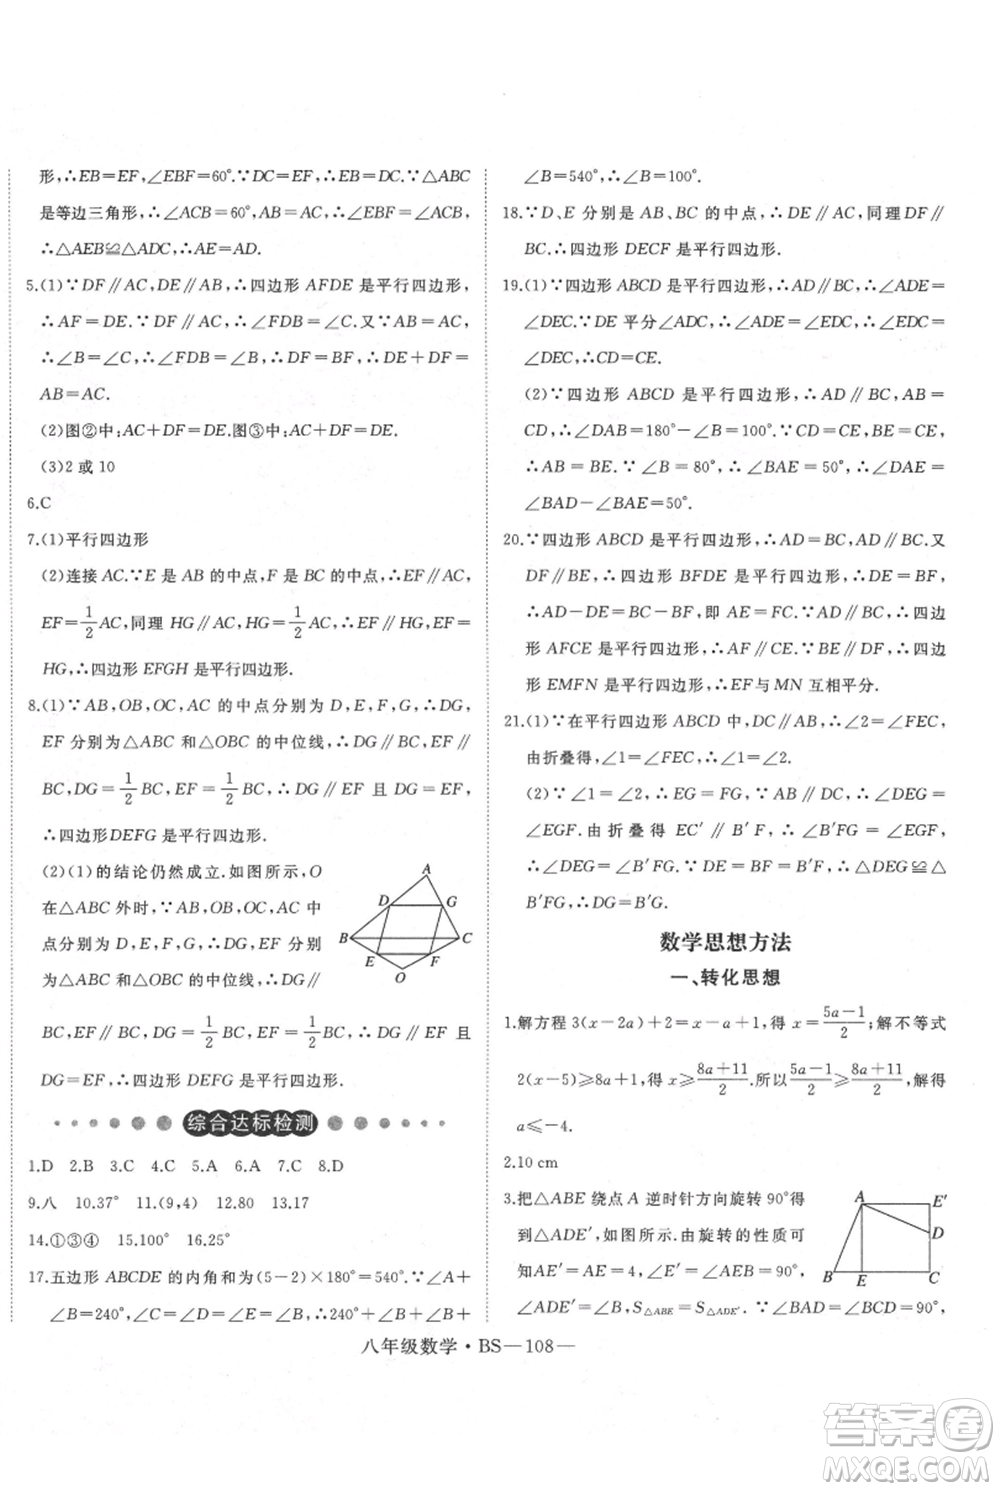 形,∴EB=EF,∠EBF=60°.∵DC=EF,∴EB=DC.∵△ABC
是等边三角形,∴∠ACB=60°,∠ABC=60°,∴∠EBF=∠ACB,
∴△AEB≌△ADC,∴AE=AD.
5.(1)∵DF∥AC,DE∥AB,∴四边形 AFDE 是平行四边形,
∴AF=DE.∵DF∥AC,∴∠FDB=∠C.又∵AB=AC,
∴∠B=∠C,∴∠FDB=∠B,∴DF=BF,∴DE+DF=
AB=AC.
(2)图②中:AC+DF=DE.图③中:AC+DF=DE.
(3)2 或 10
6.C
7.(1)平行四边形
(2)连接 AC.∵E 是 AB 的中点,F 是 BC 的中点,∴EF∥AC,
EF=1/2AC,同理 HG∥AC,HG=1/2AC,∴EF∥HG,EF=
HG,∴四边形 EFGH 是平行四边形.
8.(1)∵AB,OB,OC,AC 的中点分别为 D,E,F,G,∴DG,
EF 分别为△ABC 和△OBC 的中位线,∴DG∥BC,EF∥
BC,DG=1/2BC,EF=1/2BC,∴DG∥EF 且 DG=EF,
∴四边形DEFG 是平行四边形.
(2)(1)的结论仍然成立.如图,O
在△ABC 外时,∵AB,OB,OC,AC 的中
点分别为 D,E,F,G,∴DG,EF 分别
为△ABC 和△OBC 的中位线,∴DG∥
BC,EF∥BC,DG=1/2BC,EF=1/2BC,∴DG∥EF 且
DG=EF,∴四边形 DEFG 是平行四边形.
A
D
G
B
C
E
F
O
综合达标检测
1.D 2.B 3.C 4.C 5.A 6.A 7.C 8.D
9.八 10.37° 11.(9,4) 12.80 13.17
14.①③④ 15.100° 16.25°
17.五边形 ABCDE 的内角和为(5-2)×180°=540°.∵∠A+
∠B=240°,∠C=∠D=∠E=2∠B,∴240°+∠B+∠B+
∠B=540°,∴∠B=100°.
18.∵D、E 分别是 AB、BC 的中点,∴DE∥AC,同理DF∥
BC.∴四边形 DECF 是平行四边形.
19.(1)∵四边形 ABCD 是平行四边形,∴AD∥BC,∴∠ADE=
∠DEC.∵DE 平分∠ADC,∴∠ADE=∠EDC,∴∠EDC=
∠DEC,∴CD=CE.
(2)∵四边形 ABCD 是平行四边形,∴AD∥BC,AB=CD,
∴∠DAB=180°-∠B=100°.∵CD=CE,BE=CE,
∴AB=BE.∵∠B=80°,∴∠BAE=50°,∴∠DAE=
∠BAD-∠BAE=50°.
20.∵四边形 ABCD 是平行四边形,∴AD∥BC,AD=BC.又
DF∥BE,∴四边形 BFDE 是平行四边形,∴DE=BF,
∴AD-DE=BC-BF,即 AE=FC.又∵AE∥FC,∴四边
形 AFCE 是平行四边形,∴AF∥CE.∵DF∥BE,∴四边
形 EMFN 是平行四边形,∴EF与 MN 互相平分.
21.(1)∵在平行四边形 ABCD 中,DC∥AB,∴∠2=∠FEC,
由折叠得,∠1=∠FEC,∴∠1=∠2.
(2)∵∠1=∠2,∴EG=FG.∵AB∥DC,∴∠DEG=
∠EGF.由折叠得 EC′∥B′F,∴∠B′FG=∠EGF,
∴∠DEG=∠B′FG.∵DE=BF=B′F,∴△DEG≌△
B′FG,∴DG=B′G.
数学思想方法
一、转化思想
1.解方程 3(x-2a)+2=x-a+1,得 x=(5a-1)/2;解不等式
2(x-5)≥8a+1,得 x≥(8a+11)/2.所以(5a-1)/2≥(8a+11)/2,解得
a≤-4.
2.10 cm
3.把△ABE 绕点 A 逆时针方向旋转 90°得
到△ADE′,如图所示.由旋转的性质可
知AE′=AE=4,∠EAE′=90°,∠AEB=
∠ADE′=90°,S△ABE=S△ADE′.∵∠BAD=∠BCD=90°,
A
E′
D
B
E
C
八年级数学·BS—108—
答案卷
MXQE.COM